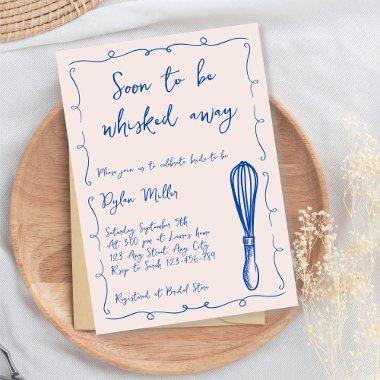 Soon to be
whisked away
Please join us to celebrate bride-to-be
Dylan Miller
Saturday September 5th
At 3:00 pm at Laura's home
123 Any Street Any City
Rsvp to Sarah 123-456-789
Registered at Bridal Store